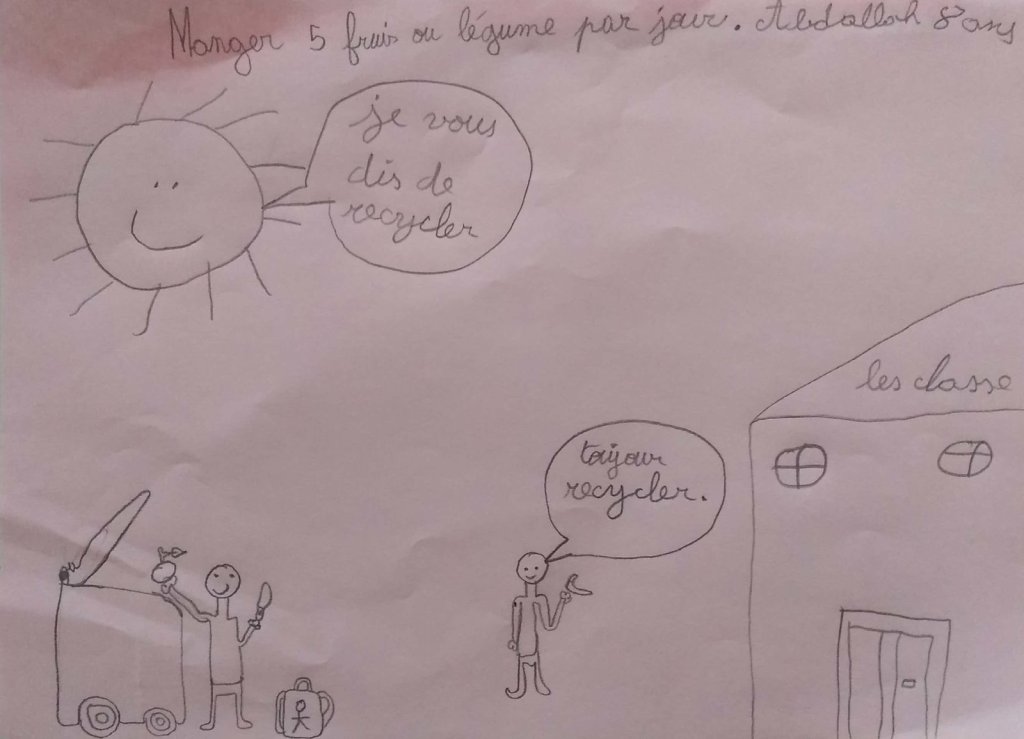 Manger 5 fruis ou légume par jour. Abdallah 8 ans
je vous
dis de
recycler
les classe
toujour
recycler.